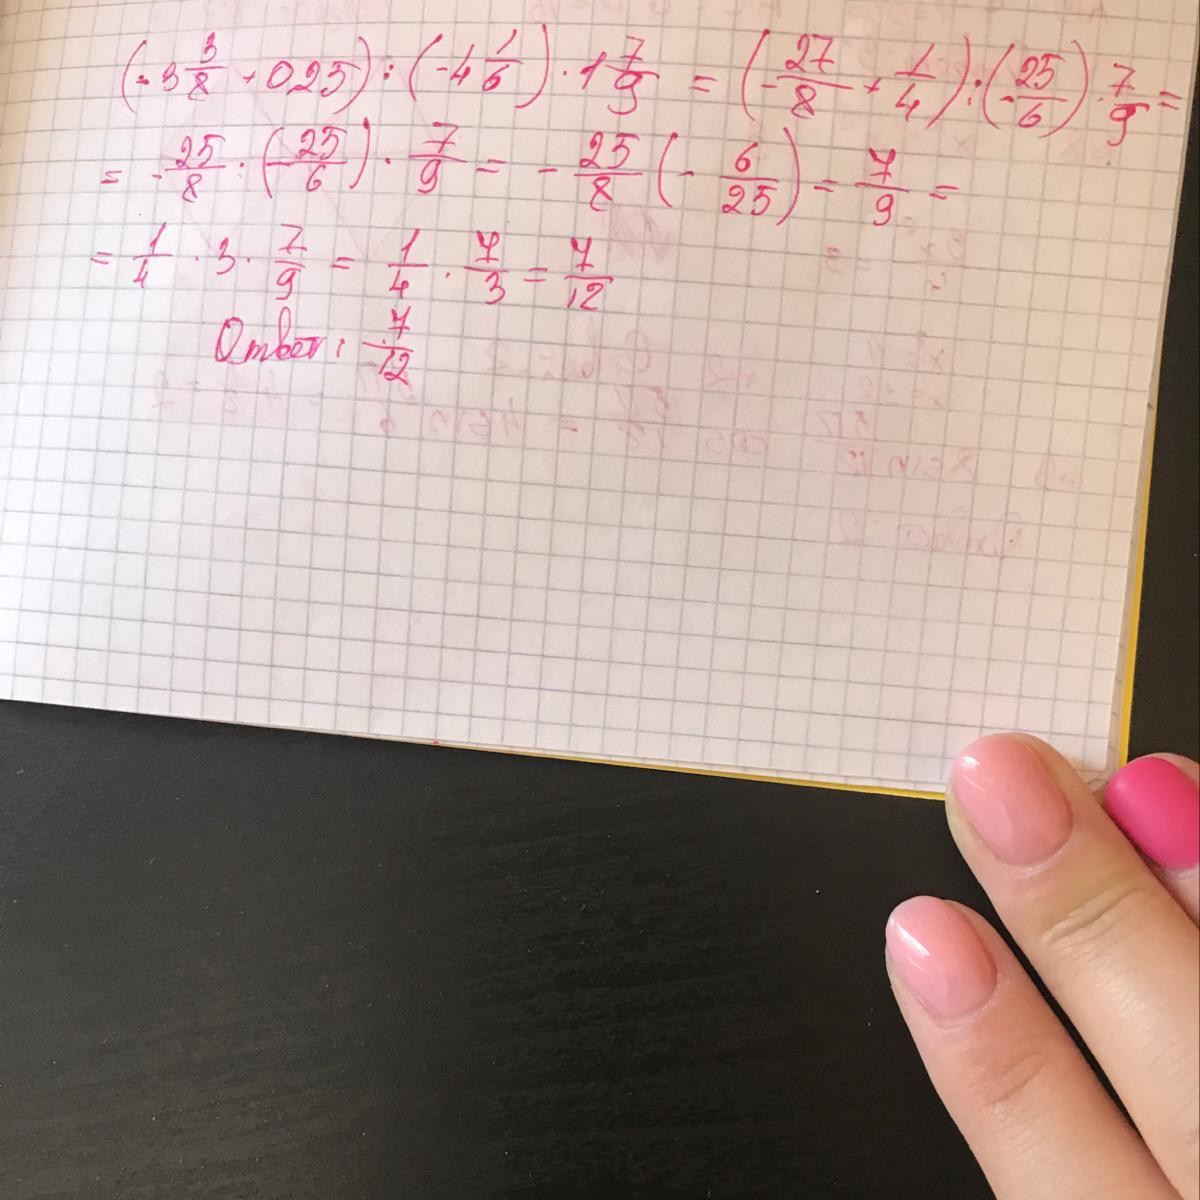 (-3 3/8 + 0,25) : (-4 1/6) · 1 7/9 = (-27/8 + 1/4) : (-25/6) · 7/9 =
= -25/8 : (-25/6) · 7/9 = -25/8 (-6/25) = 7/9 =
= 1/4 · 3 · 7/9 = 1/4 · 7/3 = 7/12
Ответ: 7/12